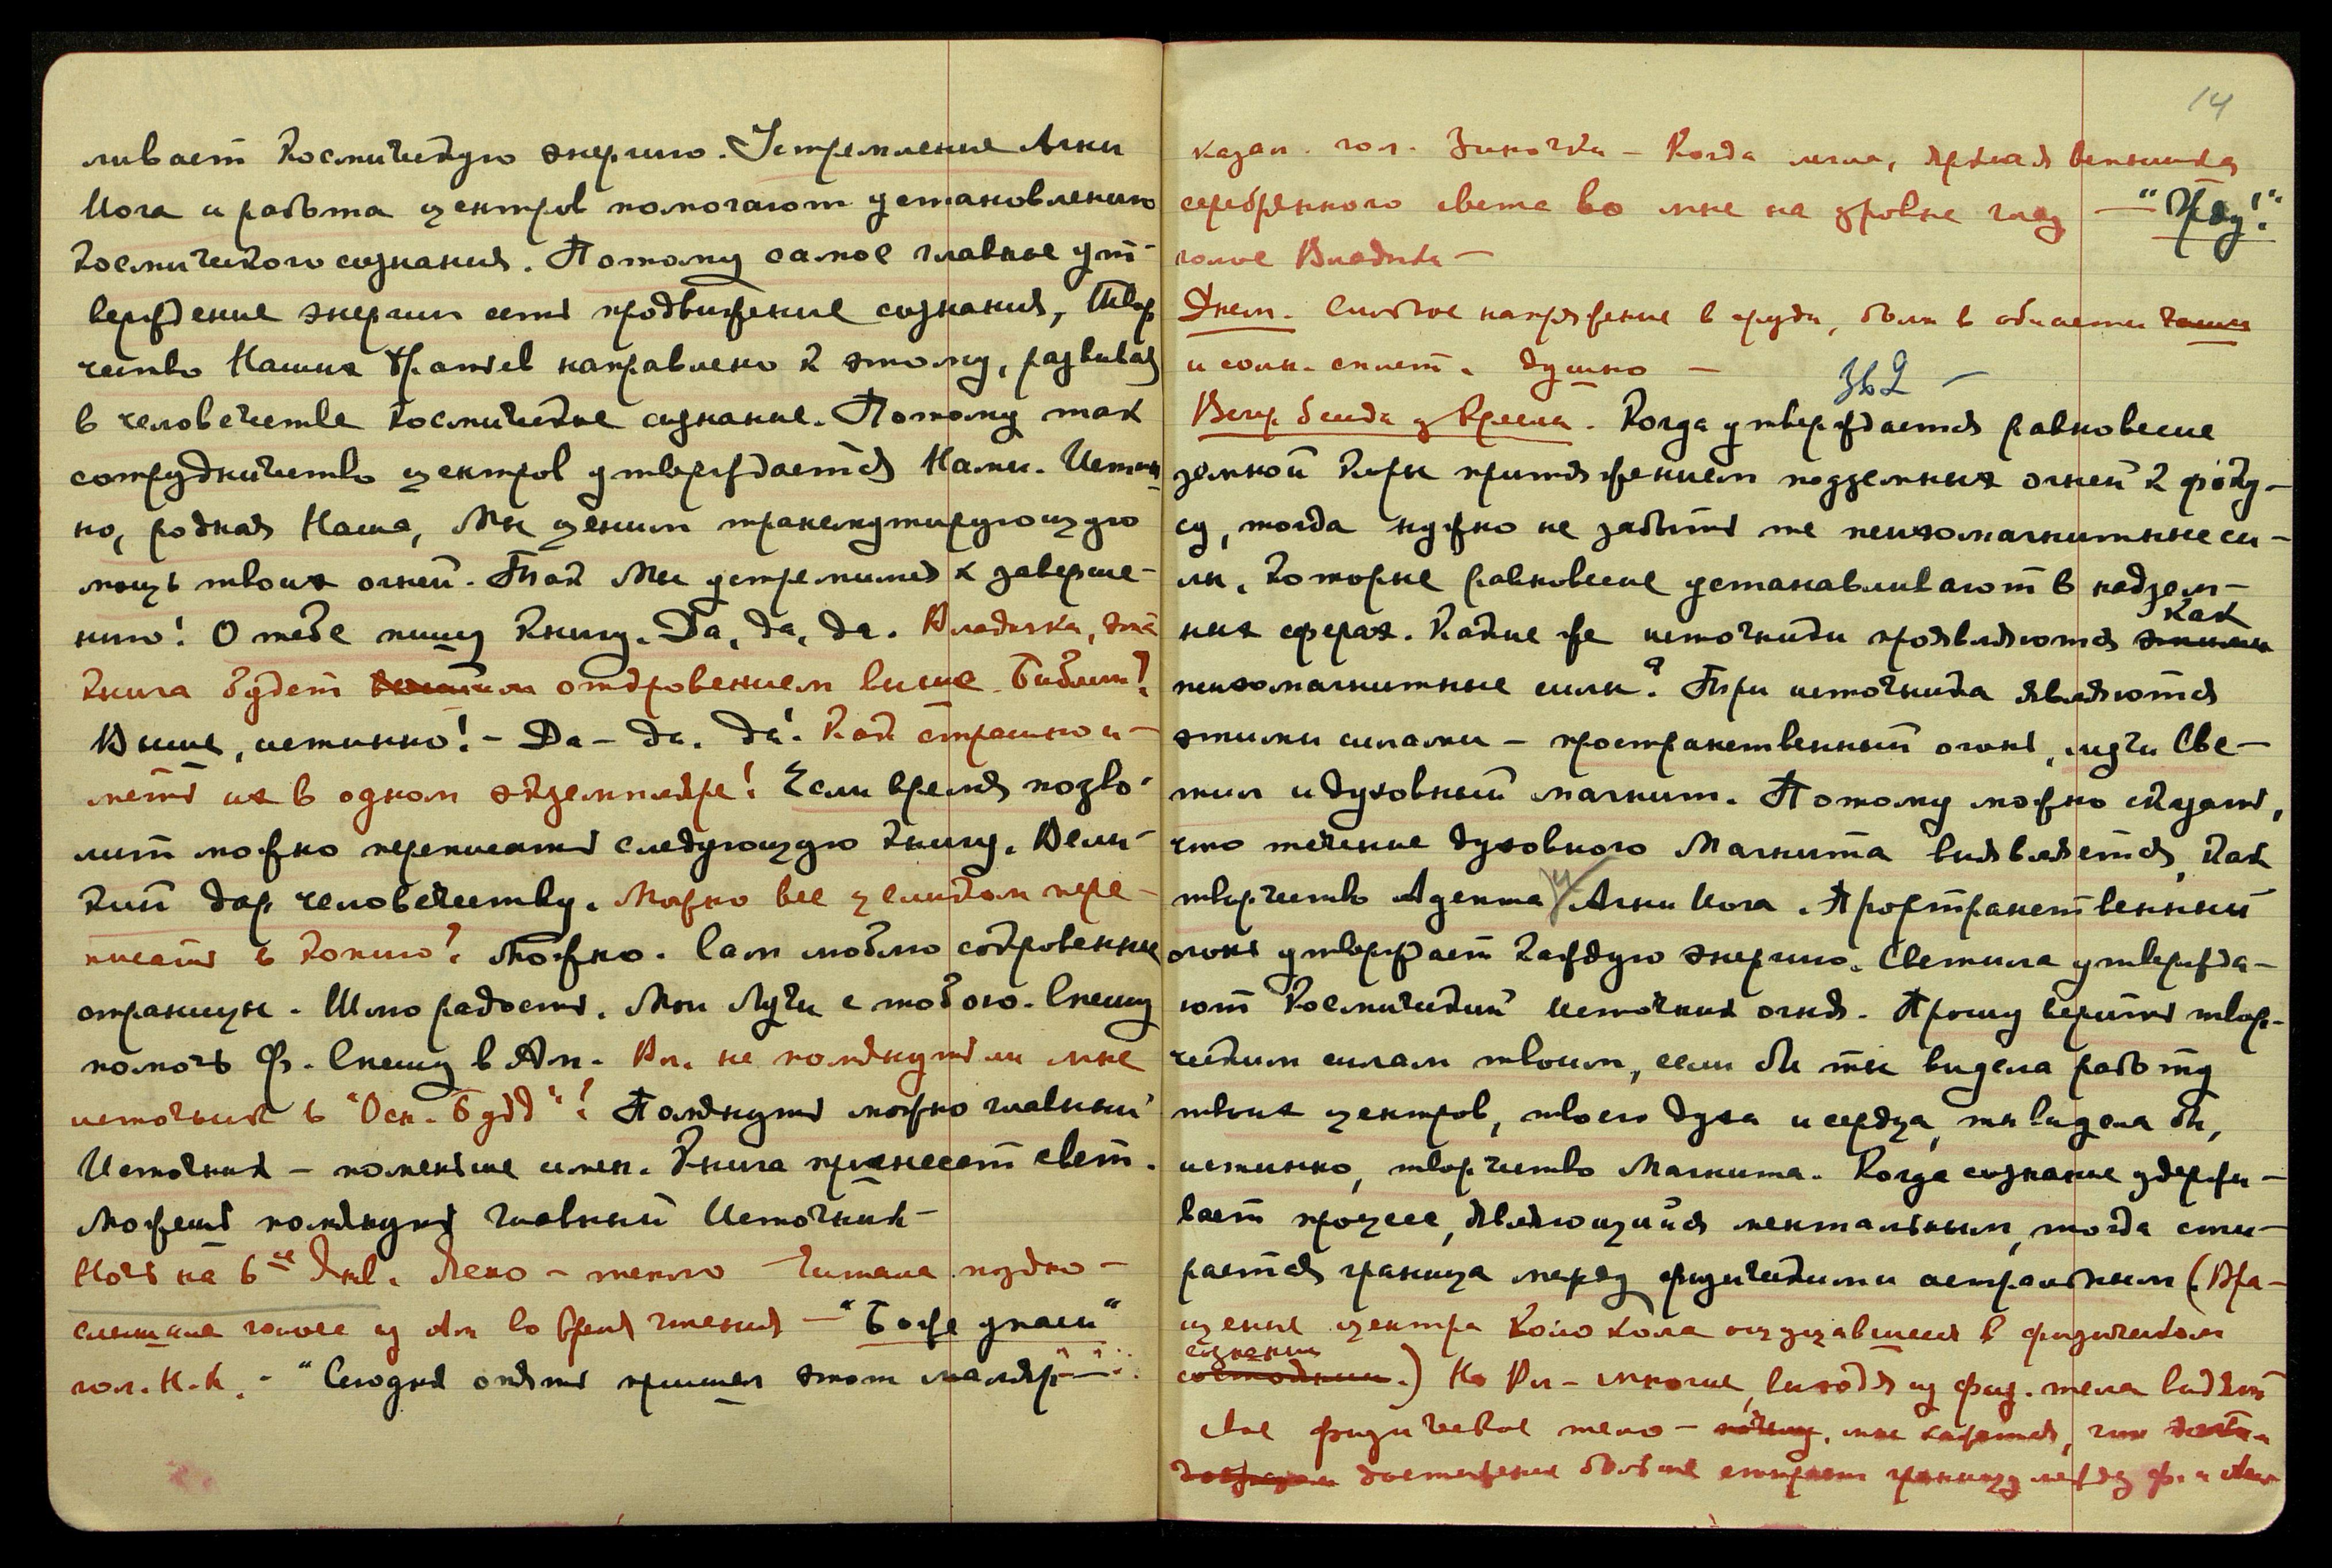 ливает Космическую энергию. Устремление Агни
Йога и работа центров помогают установлению
космического сознания. Потому самое главное ут-
верждение энергии есть продвижение сознания, Твор
чество Наших Братьев направлено к этому, развивая
в человечестве космическое сознание. Потому так
сотрудничество центров утверждается Нами. Истин
но, родная Наша, Мы ценим трансмутирующую
мощь твоих огней. Так Мы устремимся к заверше-
нию! О тебе пишу книгу. Да, да, да. Владыка, эта
книга будет откровением выше Библии?
Выше, истинно! - Да - да. да! Как страшно и-
меть их в одном экземпляре! Если время позво-
лит можно переписать следующую книгу. Вели-
кий дар человечеству. Можно все целиком пере-
писать в копию? Можно. Сам люблю сокровенные
страницы. Шлю радость. Мои Лучи с тобою. Спешу
помочь Ф. Спешу в Ам. Вл. не помянуть ли мне
источник в "Осн. Будд"? Помянуть можно главный
Источник - поменьше имен. Книга принесет свет.
Можешь помянуть главный Источник -
Ночь на 6ое Янв. Ясно - тепло Читала поздно -
слышала голос из Ам во время чтения - "Боже упаси"
гол. Н.К. - "Сегодня опять пришел этот маляр....
14
казал. гол. Зиночки - Когда легла, яркая вспышка
серебряного света во мне на уровне глаз - "Иду!"
голос Владыки -
Днем. Слабое напряжение в груди, боли в области чаши
и солн. сплет. душно -
362 -
Веч. беседа у Кресла. Когда утверждается равновесие
земной коры притяжением подземных огней к фоку-
су, тогда нужно не забыть те психомагнитные си-
лы, которые равновесие устанавливают в надзем-
как
ных сферах. Какие же источники проявляются этими
психомагнитные силы? Три источника являются
этими силами - пространственный огонь, лучи Све-
тил и духовный магнит. Потому можно сказать,
что течение духовного Магнита выявляется, как
творчество Адепта Агни Йога. Пространственный
огонь утверждает каждую энергию. Светила утвержда-
ют Космический источник огня. Прошу верить твор-
ческим силам твоим, если бы ты видела работу
твоих центров, твоего духа и сердца, ты видела бы,
истинно, творчество Магнита. Когда сознание удержи-
вает процесс, являющийся ментальным, тогда сти-
рается граница между физическим и астральным (Вра-
щение центра Колокола ощущавшееся в физическом
сознании
состоянии.) Но Вл - многие, выходя из физ. тела видят
свое физическое тело - почему, мне кажется, что
достижение больше стирает границу между ф. и Аст